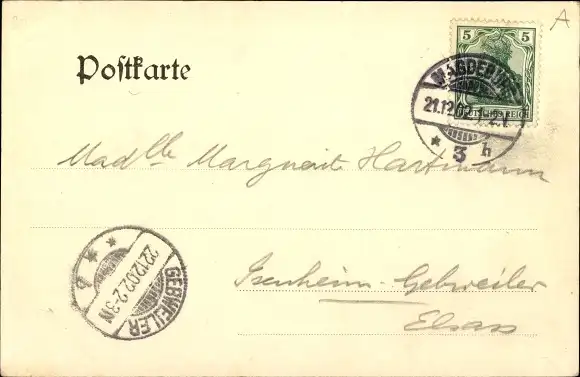 A
5 5
Postkarte
MAGDEBURG
21.12.02. 1-2.V
* 3 h
DEUTSCHES REICH
Madlle Marguerite Hartmann
GEBWEILER
22.12.02. 2-3N
* b *
Isenheim-Gebweiler
Elsass